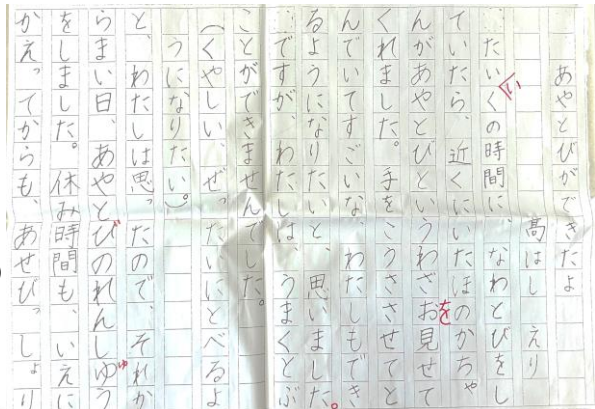 あやとびができたよ
高はし えり
たいいくの時間に、なわとびをし
ていたら、近くにいたほのかちゃ
んがあやとびというわざお見せて
を
くれました。手をこうささせてと
んでいてすごいな、わたしもでき
るようになりたいと、思いました。
ですが、わたしは、うまくとぶ
ことができませんでした。
(くやしい、ぜったいにとべるよ
うになりたい)。
と、わたしは思ったので、それか
らまい日、あやとびのれんしゆう
ゅ
をしました。休み時間も、いえに
かえってからも、あせびっしょり